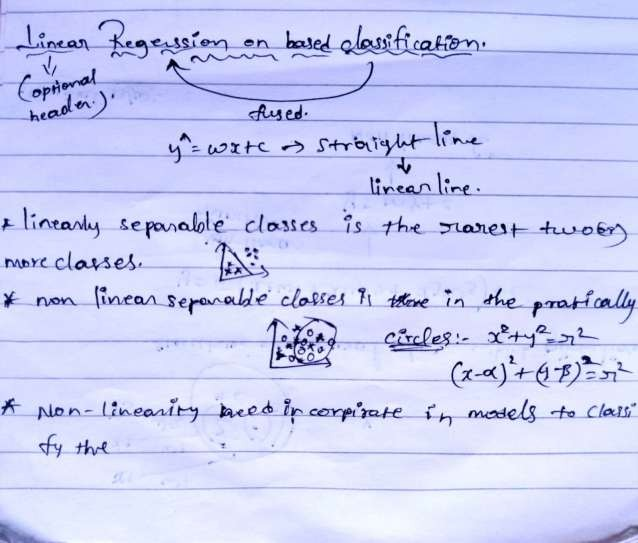 Linear Regerssion on based classification.
(optional
header.)
fused.
y^ = wx+c → straight line
linear line.
* linearly separable classes is the rarest two (or)
more classes.
* non linear separable classes is in the pratically
circles:- x²+y²=r²
(x-α)²+(y-β)²=r²
* Non-linearity need incorpirate in models to classi
fy the